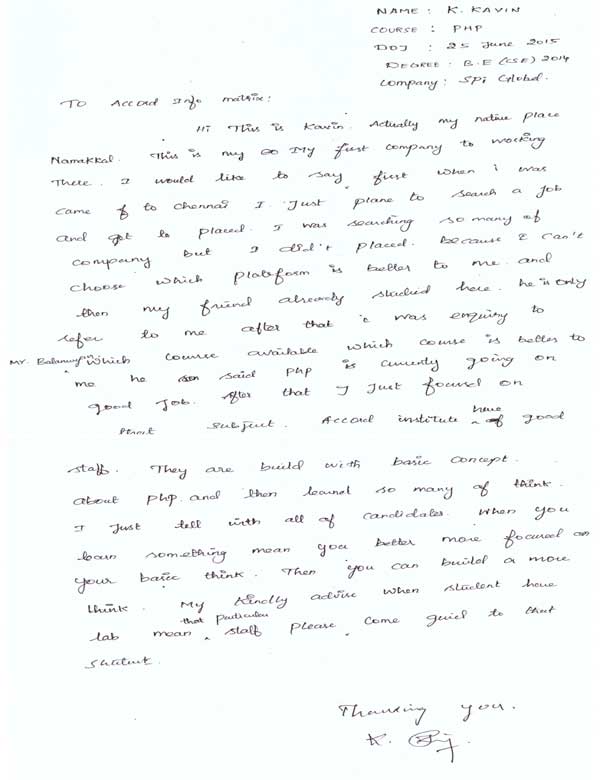 NAME : K. KAVIN
COURSE : PHP
DOJ : 25 June 2015
DEGREE : B.E (CSE) 2014
Company : SPi Global.
To Accord Info matrix:
Hi This is Kavin. Actually my native place
Namakkal. This is my My first company to working
There. I would like to say first when i was
came to Chennai I Just plane to search a Job
and get to placed. I was searching so many of
company but I didn't placed. because I can't
choose which plateform is better to me. and
then my friend already studied here. he is only
refer to me after that i was enquiry to
Mr. which course available which course is better to
me he said PHP is currently going on
good Job. After that I Just focused on
subject. Accord institute have of good
staff. They are build with basic concept.
about PHP. and then learnd so many of think.
I Just tell with all of candidates. When you
learn something mean you better more focused on
your basic think. Then you can build a more
think. My Kindly advise when student have
lab mean that particular staff please come to that
Thanking you.
K.